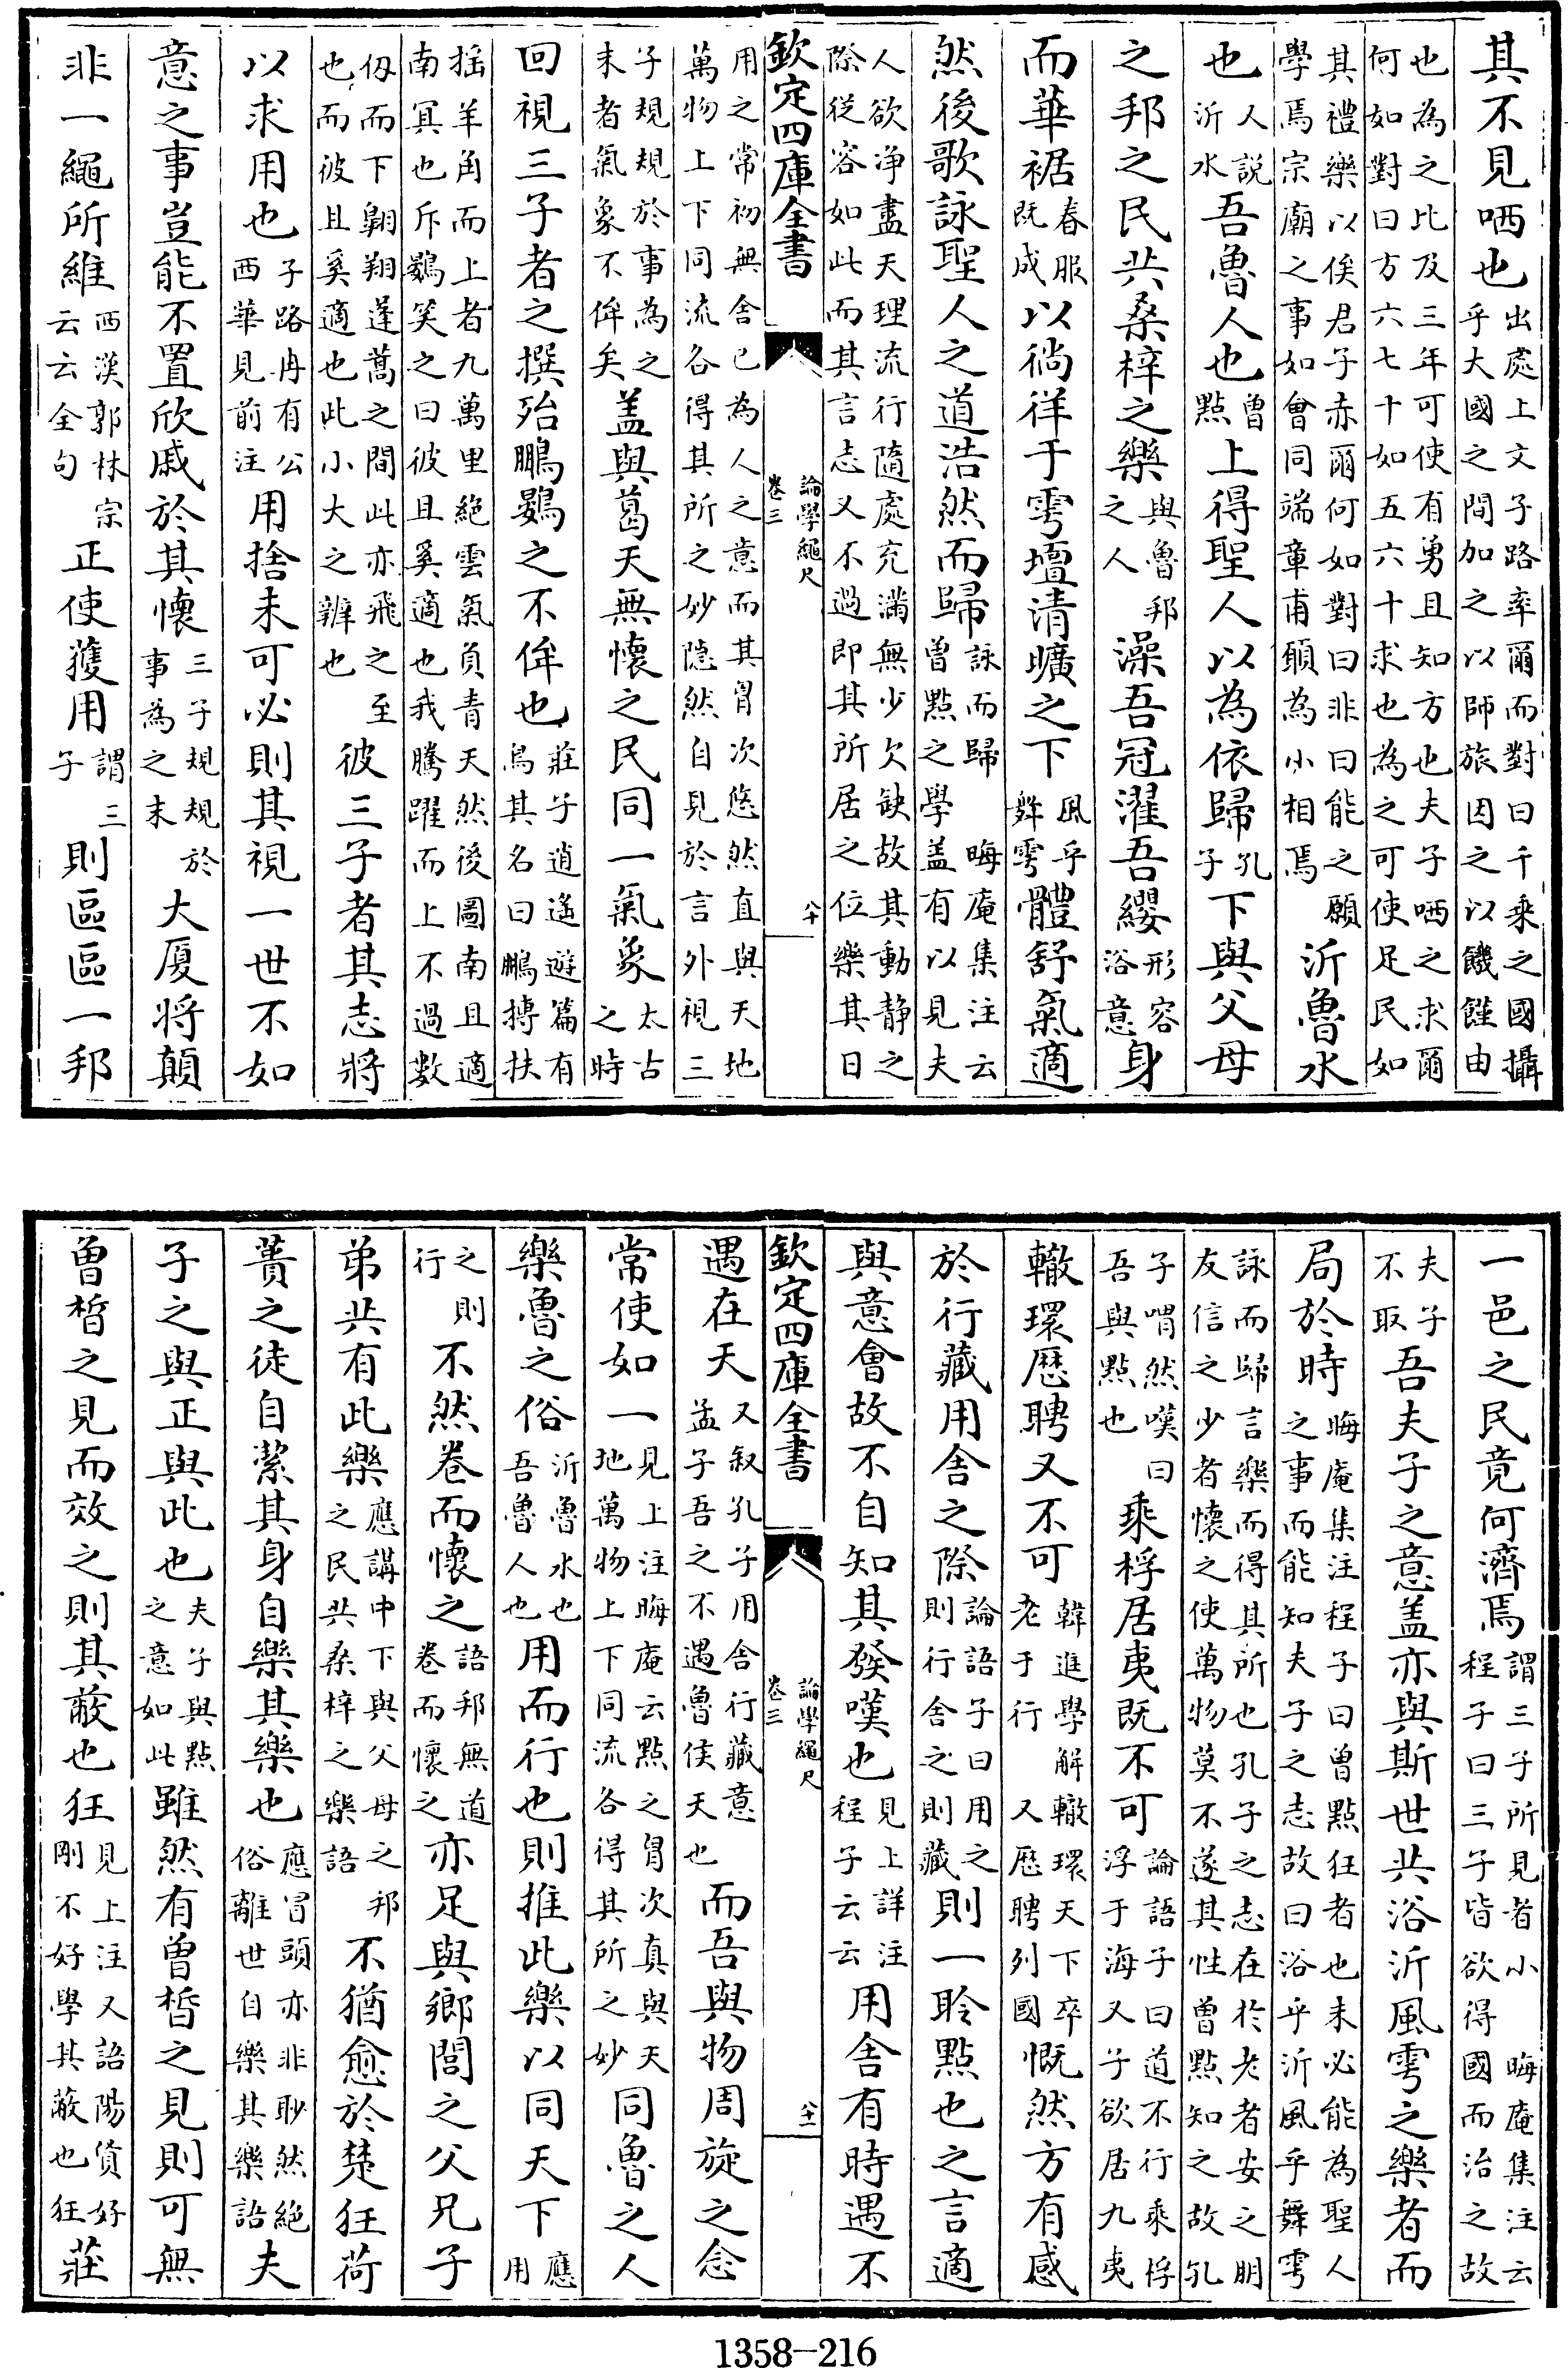 其不見哂也出處上文子路率爾而對曰千乘之國攝乎大國之間加之以師旅因之以饑饉由
也為之比及三年可使有勇且知方也夫子哂之求爾何如對曰方六七十如五六十求也為之可使足民如
其禮樂以俟君子赤爾何如對曰非曰能之願學焉宗廟之事如會同端章甫願為小相焉沂魯水
也人説沂水吾魯人也曾點上得聖人以為依歸孔子下與父母
之邦之民共桑梓之樂與魯邦之人澡吾冠濯吾纓形容浴意身
而華裾春服既成以徜徉于雩壇清曠之下風乎舞雩體舒氣適
然後歌詠聖人之道浩然而歸詠而歸晦庵集注云曾點之學盖有以見夫
人欲净盡天理流行隨處充滿無少欠缺故其動静之際從容如此而其言志又不過即其所居之位樂其日
欽定四庫全書 論學繩尺 卷三 八十
用之常初無舍已為人之意而其胷次悠然直與天地萬物上下同流各得其所之妙隱然自見於言外視三
子規規於事為之末者氣象不侔矣盖與葛天無懷之民同一氣象太古之時
回視三子者之撰殆鵬鷃之不侔也莊子逍遙遊篇有鳥其名曰鵬搏扶
揺羊角而上者九萬里絶雲氣負青天然後圖南且適南冥也斥鷃笑之曰彼且奚適也我騰躍而上不過數
仭而下翺翔蓬蒿之間此亦飛之至也而彼且奚適也此小大之辨也彼三子者其志將
以求用也子路冉有公西華見前注用捨未可必則其視一世不如
意之事豈能不置欣戚於其懷三子規規於事為之末大厦将顛
非一繩所維西漢郭林宗云云全句正使獲用謂三子則區區一邦
一邑之民竟何濟焉謂三子所見者小晦庵集注云程子曰三子皆欲得國而治之故
夫子不取吾夫子之意盖亦與斯世共浴沂風雩之樂者而
局於時晦庵集注程子曰曾點狂者也未必能為聖人之事而能知夫子之志故曰浴乎沂風乎舞雩
詠而歸言樂而得其所也孔子之志在於老者安之朋友信之少者懷之使萬物莫不遂其性曾點知之故孔
子喟然嘆曰吾與點也乘桴居夷既不可論語子曰道不行乘桴浮于海又子欲居九夷
轍環歴聘又不可韓進學解轍環天下卒老于行又歴聘列國慨然方有感
於行藏用舍之際論語子曰用之則行舍之則藏則一聆點也之言適
與意會故不自知其發嘆也見上詳注程子云云用舍有時遇不
欽定四庫全書 論學繩尺 卷三 八十一
遇在天又叙孔子用舍行藏意孟子吾之不遇魯侯天也而吾與物周旋之念
常使如一見上注晦庵云點之胷次真與天地萬物上下同流各得其所之妙同魯之人
樂魯之俗沂魯水也吾魯人也用而行也則推此樂以同天下應用
之則行不然卷而懷之語邦無道卷而懷之亦足與鄉閭之父兄子
弟共有此樂應講中下與父母之邦之民共桑梓之樂語不猶愈於楚狂荷
蕢之徒自潔其身自樂其樂也應冒頭亦非眇然絶俗離世自樂其樂語夫
子之與正與此也夫子與點之意如此雖然有曾晳之見則可無
曾晳之見而效之則其蔽也狂見上注又語陽貨好剛不好學其蔽也狂莊
1358-216